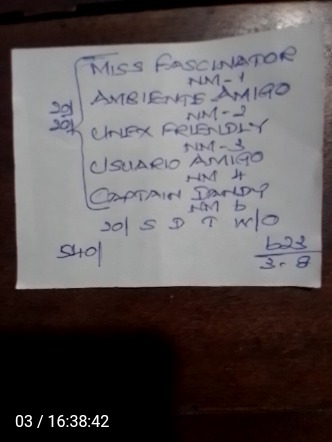 MISS FASCINATOR
NM-1
AMBIENTE AMIGO
NM-2
UNEX FRIENDLY
NM-3
USUARIO AMIGO
NM 4
CAPTAIN DANDY
NM 6
20/
20/
20/ S D T W/O
540/
623
3-8
03 / 16:38:42